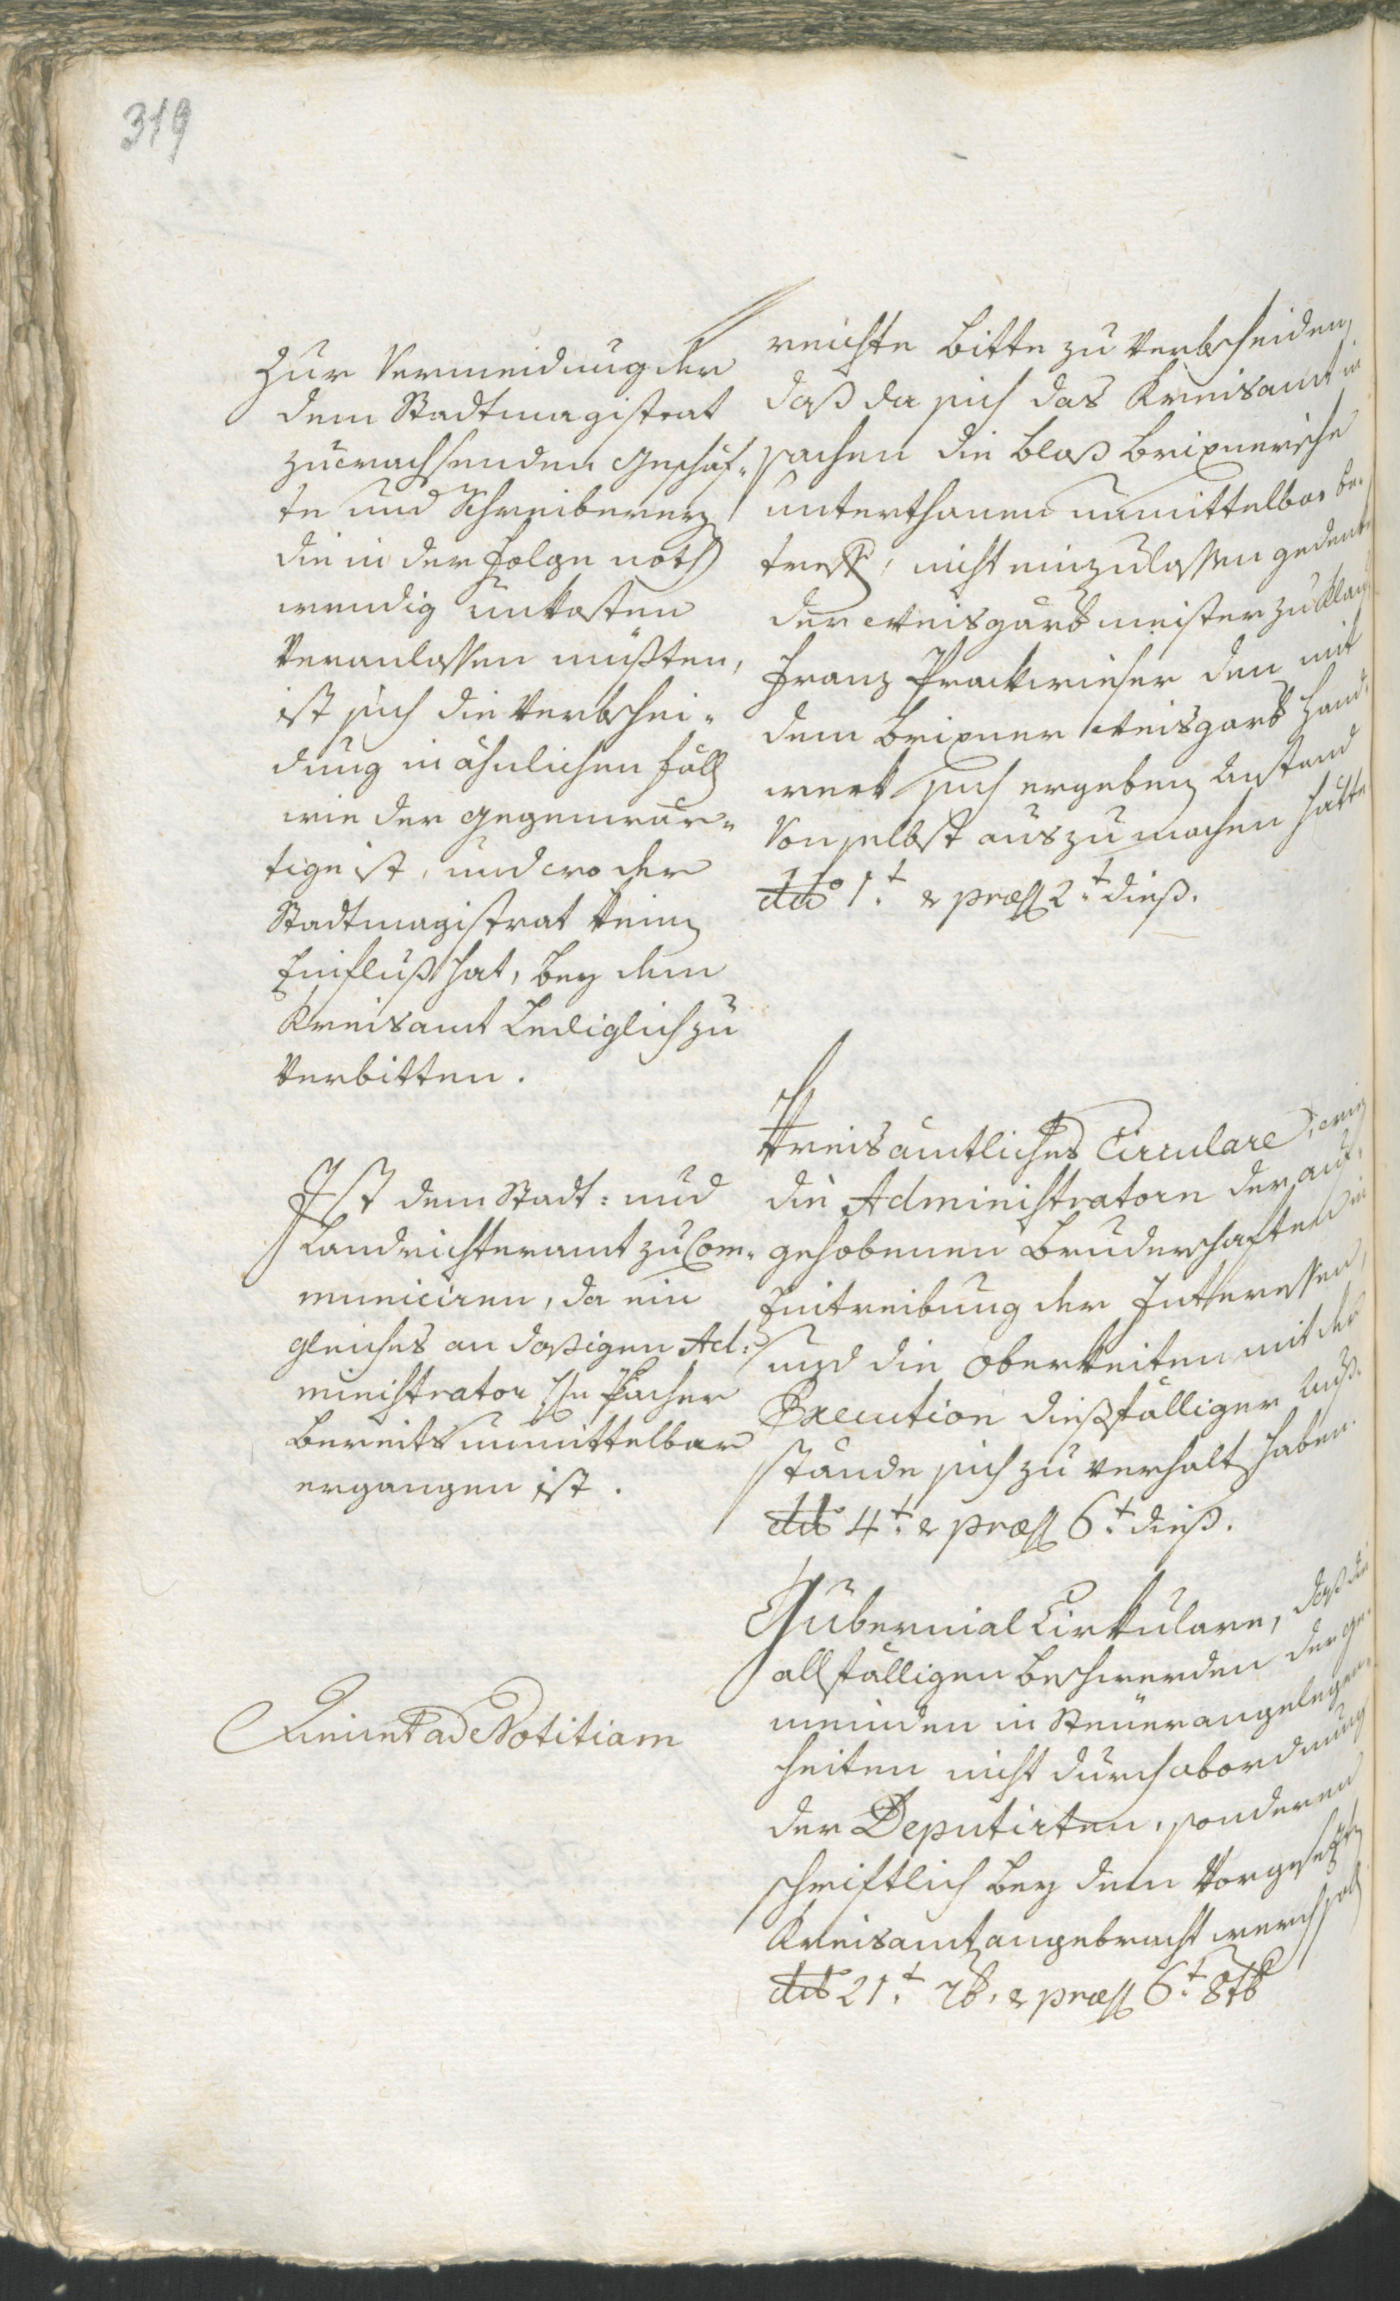 319
Zur Vermeidung der
dem Stadtmagistrat
zuewachsenden Geschäf-
te und Schreiberey
die in der Folge noth
wendig Unkosten
Veranlassen müßten,
ist sich die Verbschei-
dung in ähnlichen fäll
wie der gegenwär-
tige ist, und wo der
Stadtmagistrat kein
Einfluß hat, bey dem
Kreisamt Lediglich zu
Verbitten.
Ist dem Stadt- und
Landrichteramt zu Com-
municiren, da ein
gleiches an dasigen Ad-
ministrator H. Pacher
bereits unmittelbar
ergangen ist.
Quiunt ad Notitiam
reichte Bitte zu Verbscheiden,
daß da sich das Kreisamt in
sachen die blos brixnerische
unterthanen unmittelbar be-
treff, nicht einzulassen gedenke
der Weisgärbmeister zu Klau
Franz Prackwieser den mit
dem brixner Weisgarb Hand-
werk sich ergeben Anstand
Von selbst auszumachen hatte
ddo 1t & præs 2t dieß.
Kreisämtliches Circulare, wie
die Administratorn der auf-
gehobenen Bruderschaften in
Eintreibung der Interessen,
und die Oberkeiten mit der
Execution dießfälliger Auß-
stände sich zu verhalt haben.
ddo 4t & præs 6t dieß.
Gubernial Cirkulare, daß die
allfälligen beschwerden der ge-
meinden in Steuerangelegen-
heiten nicht durch abordnung
der Deputirten, sonderen
schriftlich bey dem Vorgesetzten
Kreisamt angebracht werd soll
ddo 21t 7b. & præs 6t 8tb